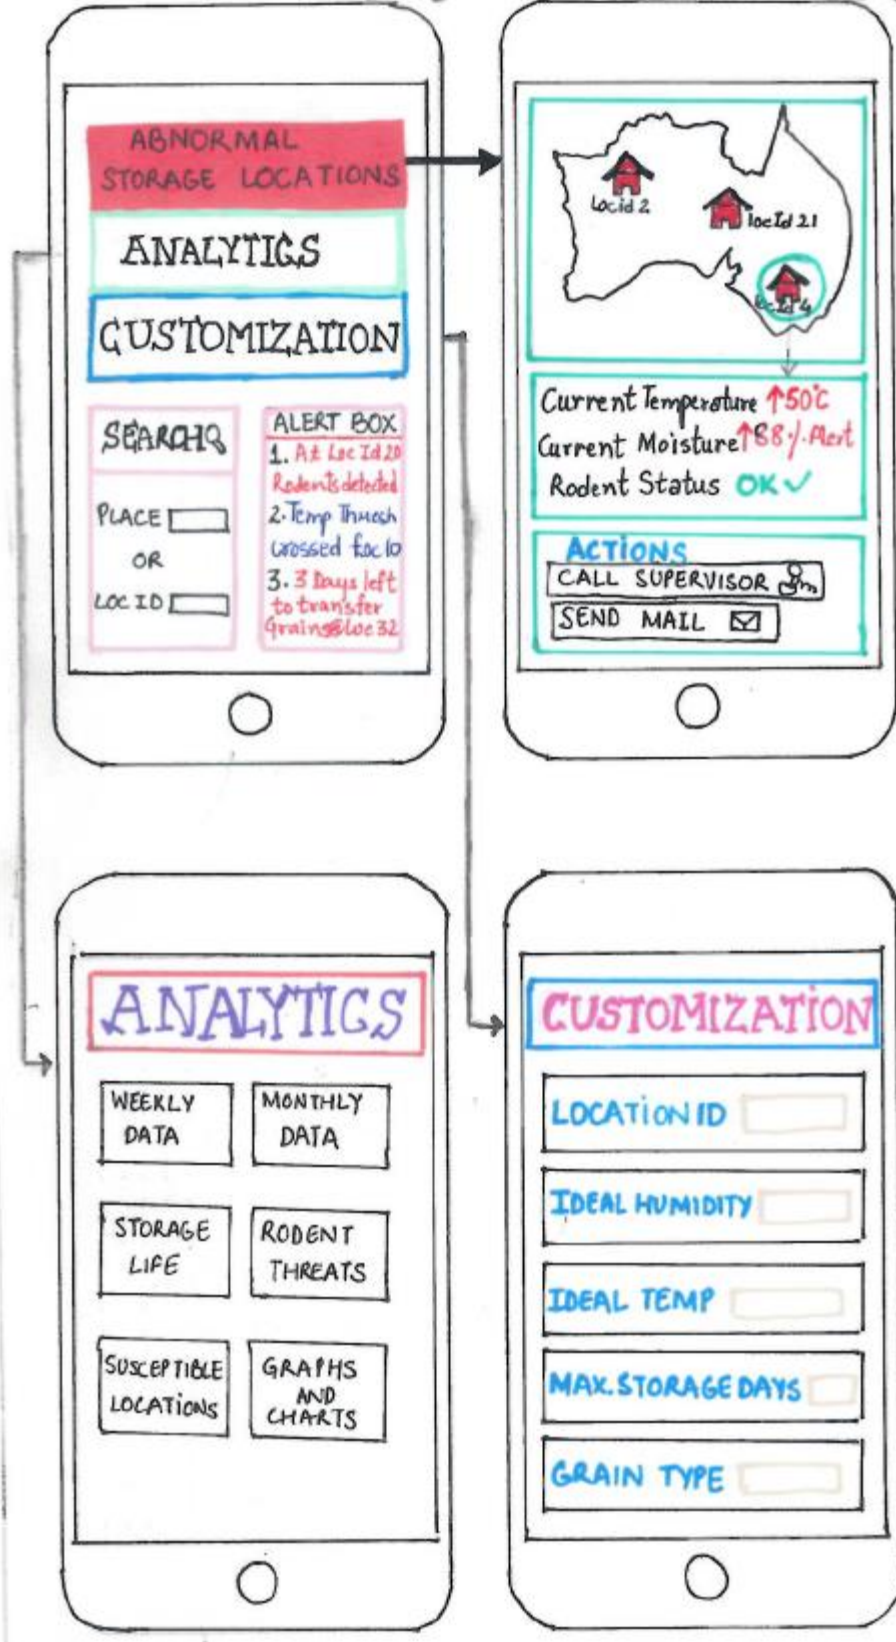 ABNORMAL
STORAGE LOCATIONS
ANALYTICS
CUSTOMIZATION
SEARCH
PLACE
OR
LOC ID
ALERT BOX
1. At Loc Id 20
Rodents detected
2. Temp Thresh
crossed Loc 10
3. 3 Days left
to transfer
Grains Loc 32
Loc id 2
loc Id 21
loc Id 4
Current Temperature ↑50°C
Current Moisture ↑88% Alert
Rodent Status OK ✓
ACTIONS
CALL SUPERVISOR
SEND MAIL
ANALYTICS
WEEKLY
DATA
MONTHLY
DATA
STORAGE
LIFE
RODENT
THREATS
SUSCEPTIBLE
LOCATIONS
GRAPHS
AND
CHARTS
CUSTOMIZATION
LOCATION ID
IDEAL HUMIDITY
IDEAL TEMP
MAX. STORAGE DAYS
GRAIN TYPE